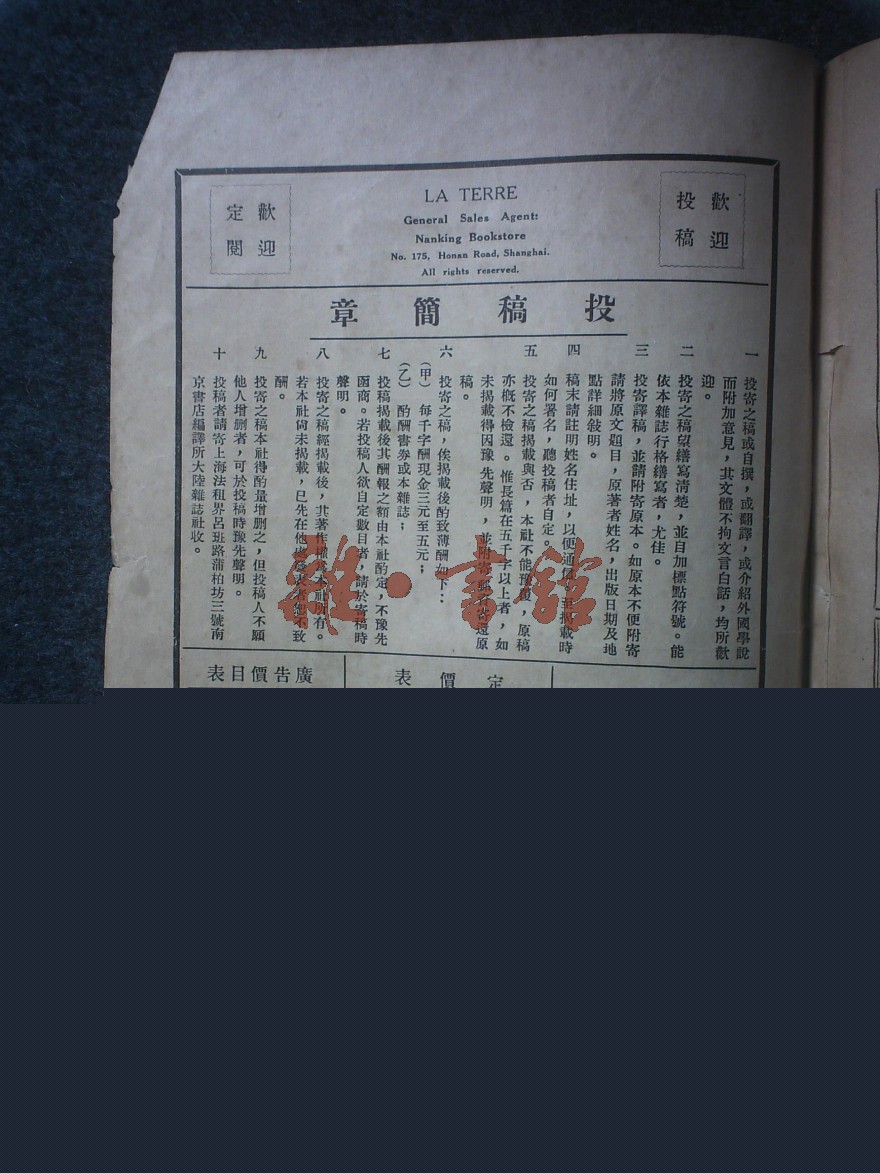 歡迎
投稿
LA TERRE
General Sales Agent:
Nanking Bookstore
No. 175, Honan Road, Shanghai.
All rights reserved.
歡迎
定閱
投稿簡章
一 投寄之稿或自撰，或翻譯，或介紹外國學說
而附加意見，其文體不拘文言白話，均所歡
迎。
二 投寄之稿望繕寫清楚，並自加標點符號。能
依本雜誌行格繕寫者，尤佳。
三 投寄譯稿，並請附寄原本。如原本不便附寄
請將原文題目，原著者姓名，出版日期及地
點詳細敍明。
四 稿末請註明姓名住址，以便通信。至揭載時
如何署名，聽投稿者自定。
五 投寄之稿揭載與否，本社不能豫覆，原稿
亦概不檢還。惟長篇在五千字以上者，如
未揭載得因豫先聲明，並附寄郵資寄還原
稿。
六 投寄之稿，俟揭載後酌致薄酬如下：
（甲） 每千字酬現金三元至五元；
（乙） 酌酬書劵或本雜誌；
七 投稿揭載後其酬報之額由本社酌定，不豫先
函商。若投稿人欲自定數目者，請於寄稿時
聲明。
八 投寄之稿經揭載後，其著作權爲本社所有。
若本社尙未揭載，已先在他處發表者恕不致
酬。
九 投寄之稿本社得酌量增删之，但投稿人不願
他人增删者，可於投稿時豫先聲明。
十 投稿者請寄上海法租界呂班路蒲柏坊三號南
京書店編譯所大陸雜誌社收。
定價表
廣告價目表
雜·書館